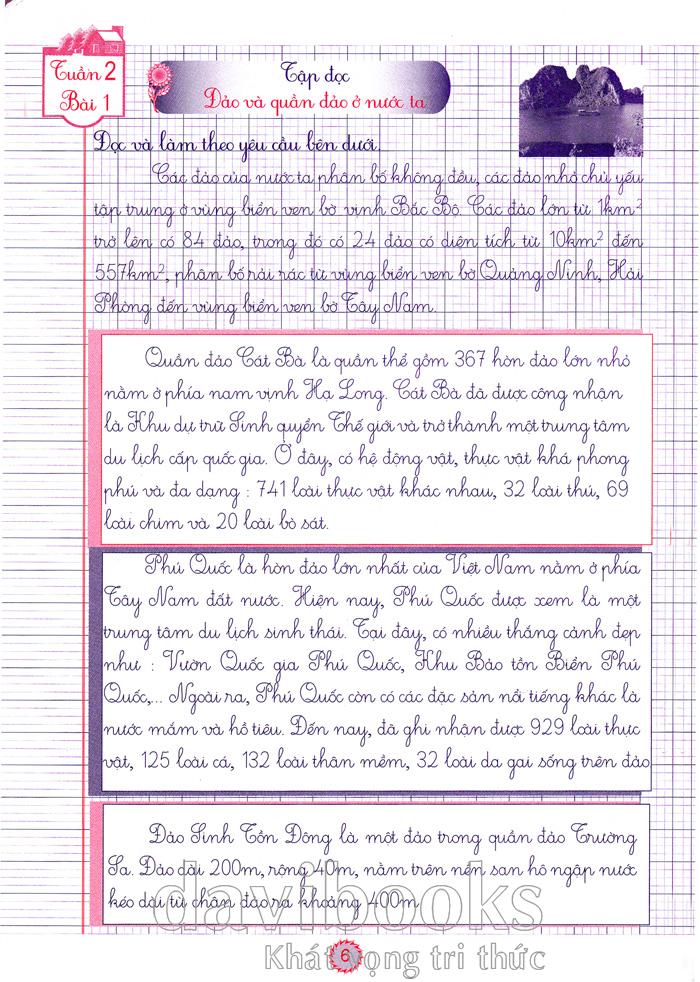 Tuần 2
Bài 1
Tập đọc
Đảo và quần đảo ở nước ta
Đọc và làm theo yêu cầu bên dưới.
Các đảo của nước ta phân bố không đều, các đảo nhỏ chủ yếu
tập trung ở vùng biển ven bờ vịnh Bắc Bộ. Các đảo lớn từ 1km²
trở lên có 84 đảo, trong đó có 24 đảo có diện tích từ 10km² đến
557km², phân bố rải rác từ vùng biển ven bờ Quảng Ninh, Hải
Phòng đến vùng biển ven bờ Tây Nam.
Quần đảo Cát Bà là quần thể gồm 367 hòn đảo lớn nhỏ
nằm ở phía nam vịnh Hạ Long. Cát Bà đã được công nhận
là Khu dự trữ Sinh quyển Thế giới và trở thành một trung tâm
du lịch cấp quốc gia. Ở đây, có hệ động vật, thực vật khá phong
phú và đa dạng : 741 loài thực vật khác nhau, 32 loài thú, 69
loài chim và 20 loài bò sát.
Phú Quốc là hòn đảo lớn nhất của Việt Nam nằm ở phía
Tây Nam đất nước. Hiện nay, Phú Quốc được xem là một
trung tâm du lịch sinh thái. Tại đây, có nhiều thắng cảnh đẹp
như : Vườn Quốc gia Phú Quốc, Khu Bảo tồn Biển Phú
Quốc,... Ngoài ra, Phú Quốc còn có các đặc sản nổi tiếng khác là
nước mắm và hồ tiêu. Đến nay, đã ghi nhận được 929 loài thực
vật, 125 loài cá, 132 loài thân mềm, 32 loài da gai sống trên đảo
Đảo Sinh Tồn Đông là một đảo trong quần đảo Trường
Sa. Đảo dài 200m, rộng 40m, nằm trên nền san hô ngập nước
kéo dài từ chân đảo ra khoảng 400m
davibooks
Khát vọng tri thức
6